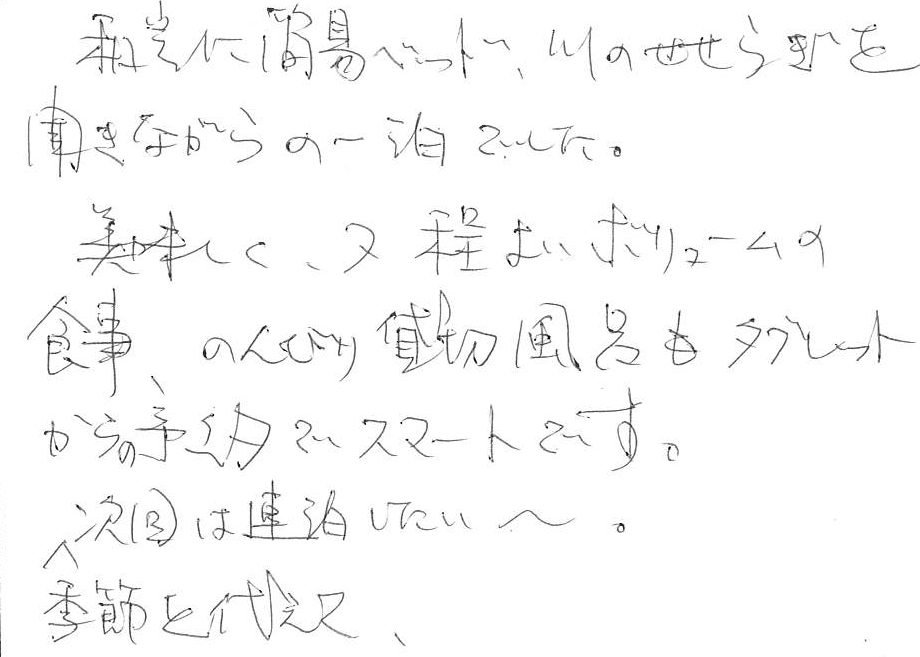 和室に簡易ベッド、川のせせらぎを
聞きながらの一泊でした。
美味しく、又 程よいボリュームの
食事、のんびり貸切風呂もタブレット
からの予約でスマートです。
次回は連泊したい〜。
季節を代えて、